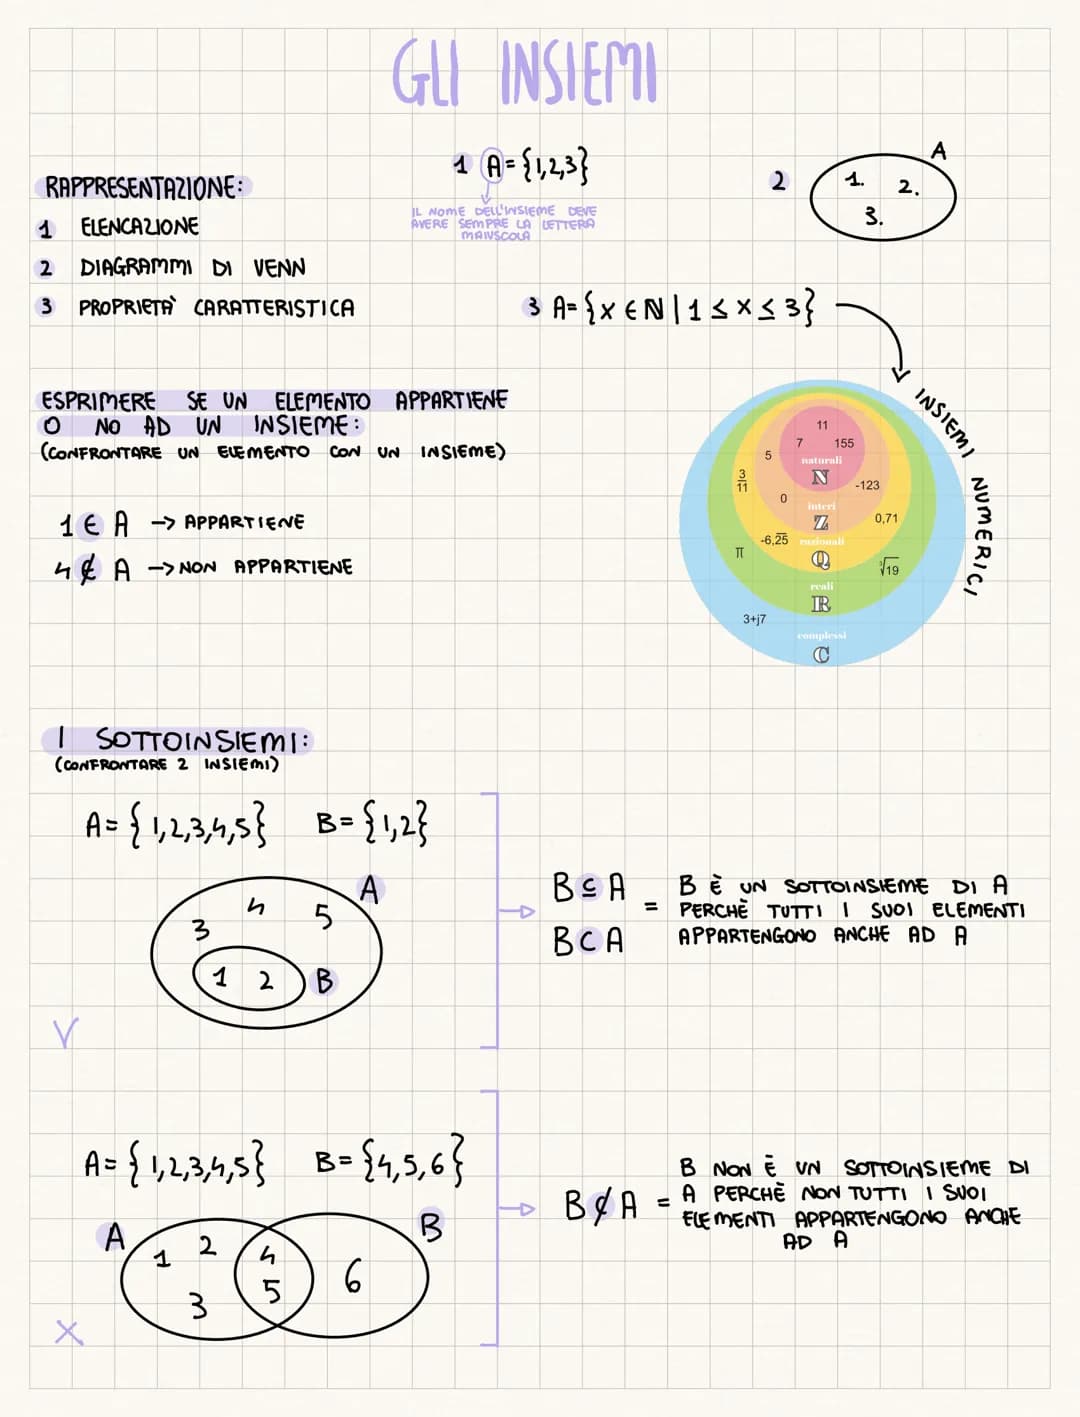 GLI INSIEMI
RAPPRESENTAZIONE:
1 ELENCAZIONE
2 DIAGRAMMI DI VENN
3 PROPRIETÀ CARATTERISTICA
1 A={1,2,3}
IL NOME DELL'INSIEME DEVE
AVERE SEMPRE LA LETTERA
MAIUSCOLA
2
A
1. 2.
3.
3 A={X ∈ N | 1 ≤ X ≤ 3}
INSIEMI NUMERICI
11
7 155
naturali
N
5
-123
0
interi
Z
3/11
0,71
-6,2̅5̅
razionali
Q
π
∛19
reali
R
3+j7
complessi
C
ESPRIMERE SE UN ELEMENTO APPARTIENE
O NO AD UN INSIEME:
(CONFRONTARE UN ELEMENTO CON UN INSIEME)
1 ∈ A -> APPARTIENE
4 ∉ A -> NON APPARTIENE
I SOTTOINSIEMI:
(CONFRONTARE 2 INSIEMI)
A={1,2,3,4,5} B={1,2}
A
3 4 5
1 2 B
V
B ⊆ A
B ⊂ A
=
B È UN SOTTOINSIEME DI A
PERCHÈ TUTTI I SUOI ELEMENTI
APPARTENGONO ANCHE AD A
A={1,2,3,4,5} B={4,5,6}
A B
1 2 4
3 5 6
X
B ⊄ A =
B NON È UN SOTTOINSIEME DI
A PERCHÈ NON TUTTI I SUOI
ELEMENTI APPARTENGONO ANCHE
AD A